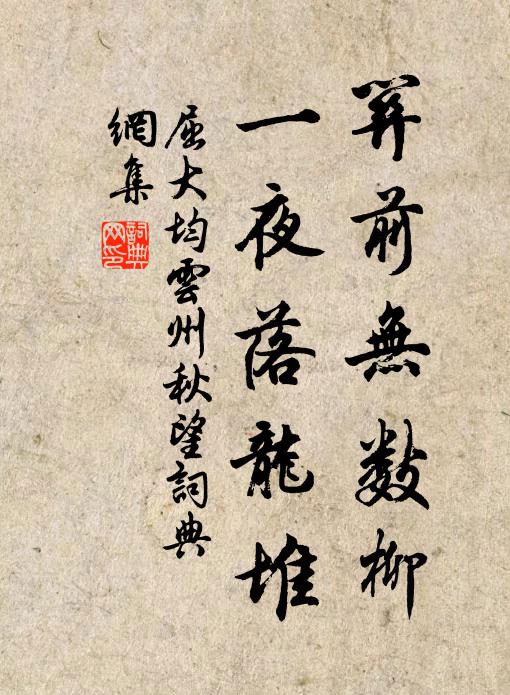 笄前無數柳
一夜落龍堆
屈大均雲州秋望詞典
網集
詞典
网印